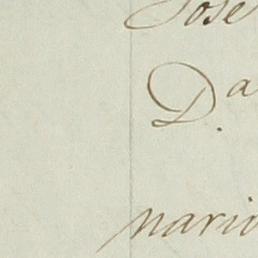 Jose
D.a
nario